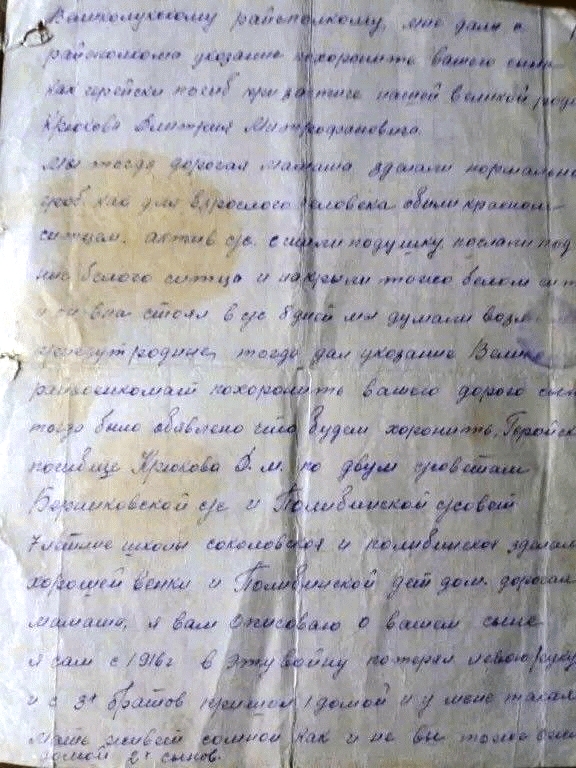 Великолукскому райсполкому, мне дали с
райсполкома указание похоронить вашего сына
как геройски погиб при защите нашей великой роди
Крюкова Дмитрия Митрофановича.
Мы тогда дорогая мамаша зделали нормально
гроб как для взрослого человека обили красном
ситцем. актив с/с. сшили подушку послали под
низ белого ситца и накрыли тожо белом сит
и он стоял в с/с 8 дней мы думали возмо
приедут родине, тогда дал указание Велико
райвоенкомат похоронить вашего дорого сын
тогда было обявлено что будем хоронить. Геройск
погибше Крюкова Д. м. по двум советам
Боршковской с/с и Полибинской с/совет
7 летние школы соколовская и полибинская зделал
хорошей венки и Полибинской дет дом. дорогая
мамаша, я вам описовало о вашем сыне
я сам с 1916 г в эту войну потерял левою руку
и с 3х братов пришол 1 домой и у мене такая
мать живет сомной как и не вы тоже
домой 2х сынов.